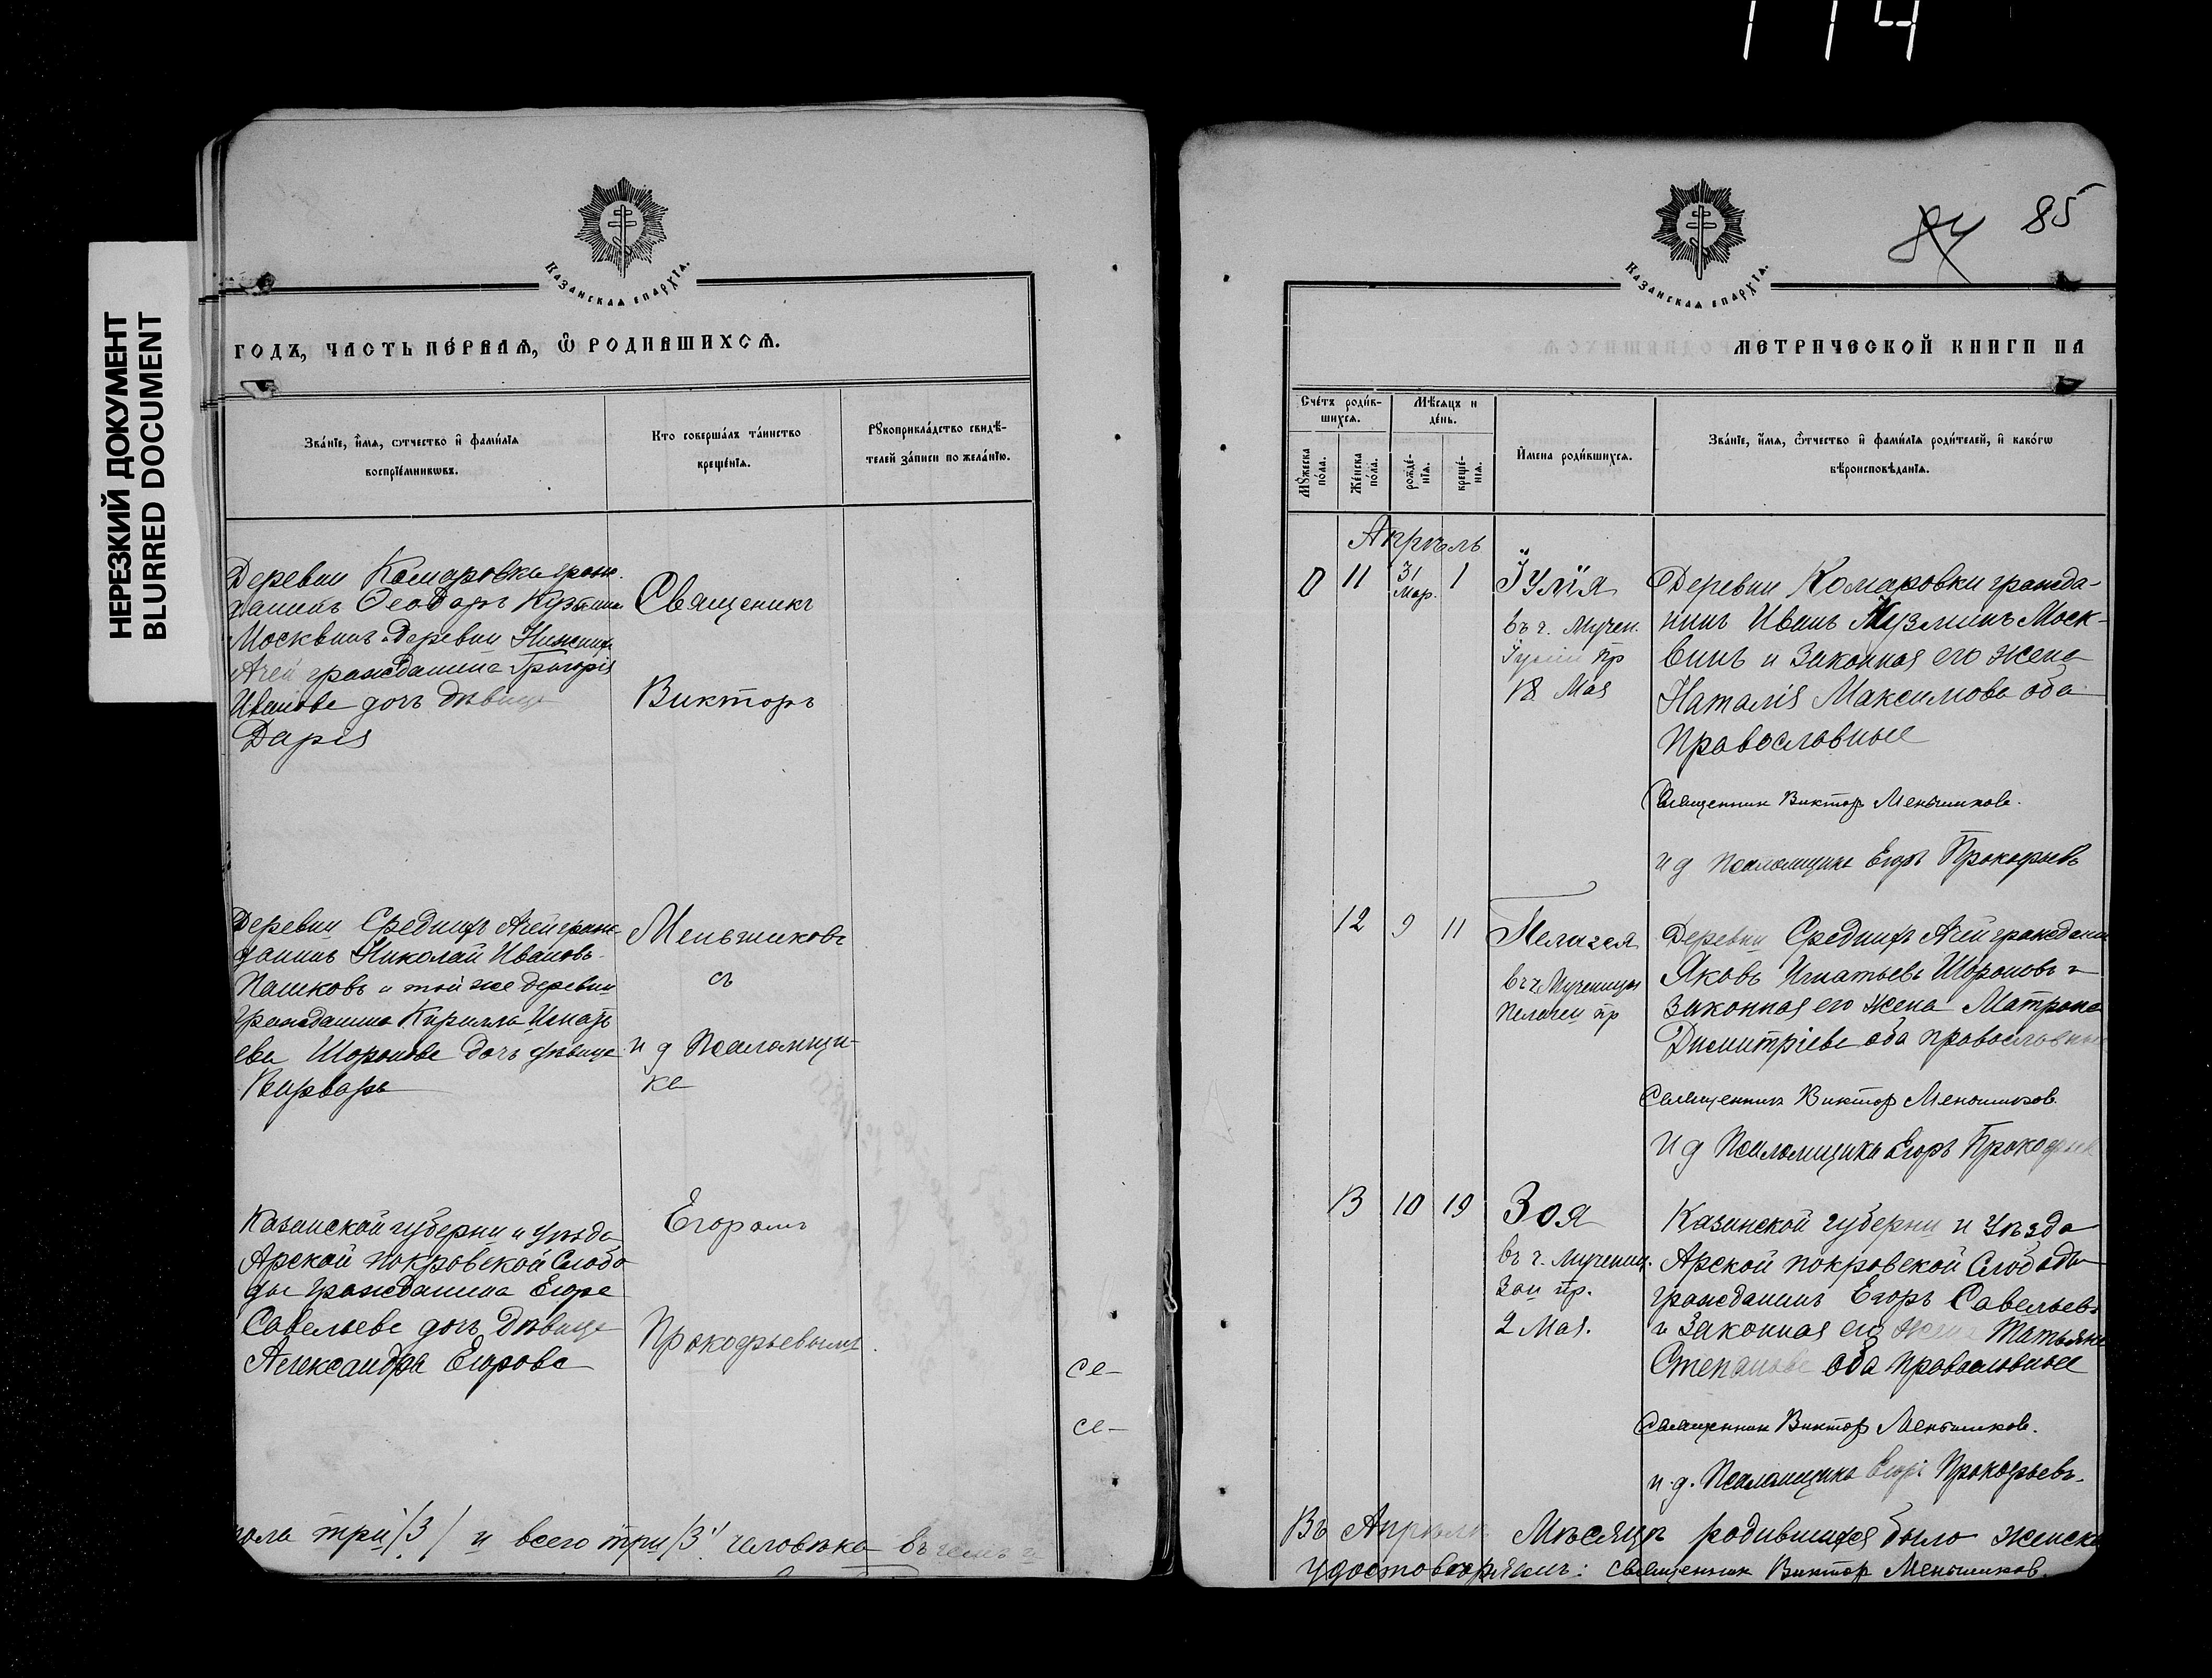 114
НЕРЕЗКИЙ ДОКУМЕНТ
BLURRED DOCUMENT
Казанская епархїа.
годъ, часть пе́рвая, ѿ родившихсѧ.
Зва́нїе, и́мѧ, ѻтчество и҆ фами́лїѧ
воспрїе́мниковъ.
Кто соверша́лъ та́инство
креще́нїѧ.
Рꙋкоприкла́дство свидѣ́-
телей за́писи по жела́нїю.
Деревни Комаровки граж.
данинъ Ѳеодоръ Кузмин
Москвинъ и Деревни Нижних
Атей гражданина Григорія
Иванова дочь дѣвица
Дарія
Священикъ
Викторъ
Деревни Среднихъ Атей граж-
данинъ Николай Ивановъ
Пашковъ и той же деревни
гражданина Кирилла Игнать
ева Шоронова дочь дѣвица
Варвара
Меньшиковъ
съ
и д Псаломщи-
ка
Казанской губерни и уѣзда
Арской покровской Слобо
ды гражданина Егора
Савельева дочь Дѣвица
Александра Егорова
Егоромъ
Прокофьевымъ
се-
се-
пола три /3/ и всего три /3/ человѣка въ чемъ и
84 85
Казанская епархїа.
метрической книги на
Сче́тъ роди́в-
шихсѧ.
Мѣ́сяцъ и
де́нь.
Мꙋ́жеска
по́ла.
Же́нска
по́ла.
рожде́-
нїѧ.
креще́-
нїѧ.
И҆мена роди́вшихсѧ.
Зва́нїе, и́мѧ, ѻ҆́тчество и҆ фами́лїѧ роди́телей, и҆ како́гѡ
вѣроисповѣ́данїѧ.
Апрѣль
0 11 31 Мар. 1
Їулїя
въ ч. Мучен.
Їуліи пр
18 Мая
Деревни Комаровки гражда-
нинъ Иванъ Кузминъ Моск-
винъ и законная его жена
Наталія Максимова оба
православные
Священник Виктор Меньшиков.
и д Псаломщика Егоръ Прокофьевъ
12 9 11
Пелагея
въ ч Мученицы
Пелагеи пр
Деревни Среднихъ Атей гражданин
Яковъ Игнатьевъ Шороновъ и
законная его жена Матрона
Димитріева оба православные
Священник Виктор Меньшиков.
И д Псаломщика Егоръ Прокофьев
13 10 19
Зоя
въ ч. Мучениц.
Зои пр.
2 Мая.
Казанской губерни и Уѣзда
Арской покровской Слободы
гражданинъ Егоръ Савельевъ
и Законная его жена Татьяна
Степанова оба православные
Священник Виктор Меньшиков.
и. д. Псаломщика Егоръ Прокофьевъ.
Въ Апрѣлѣ Мѣсяцѣ родившихся было женска
удостовѣряемъ: священник Виктор Меньшиков.